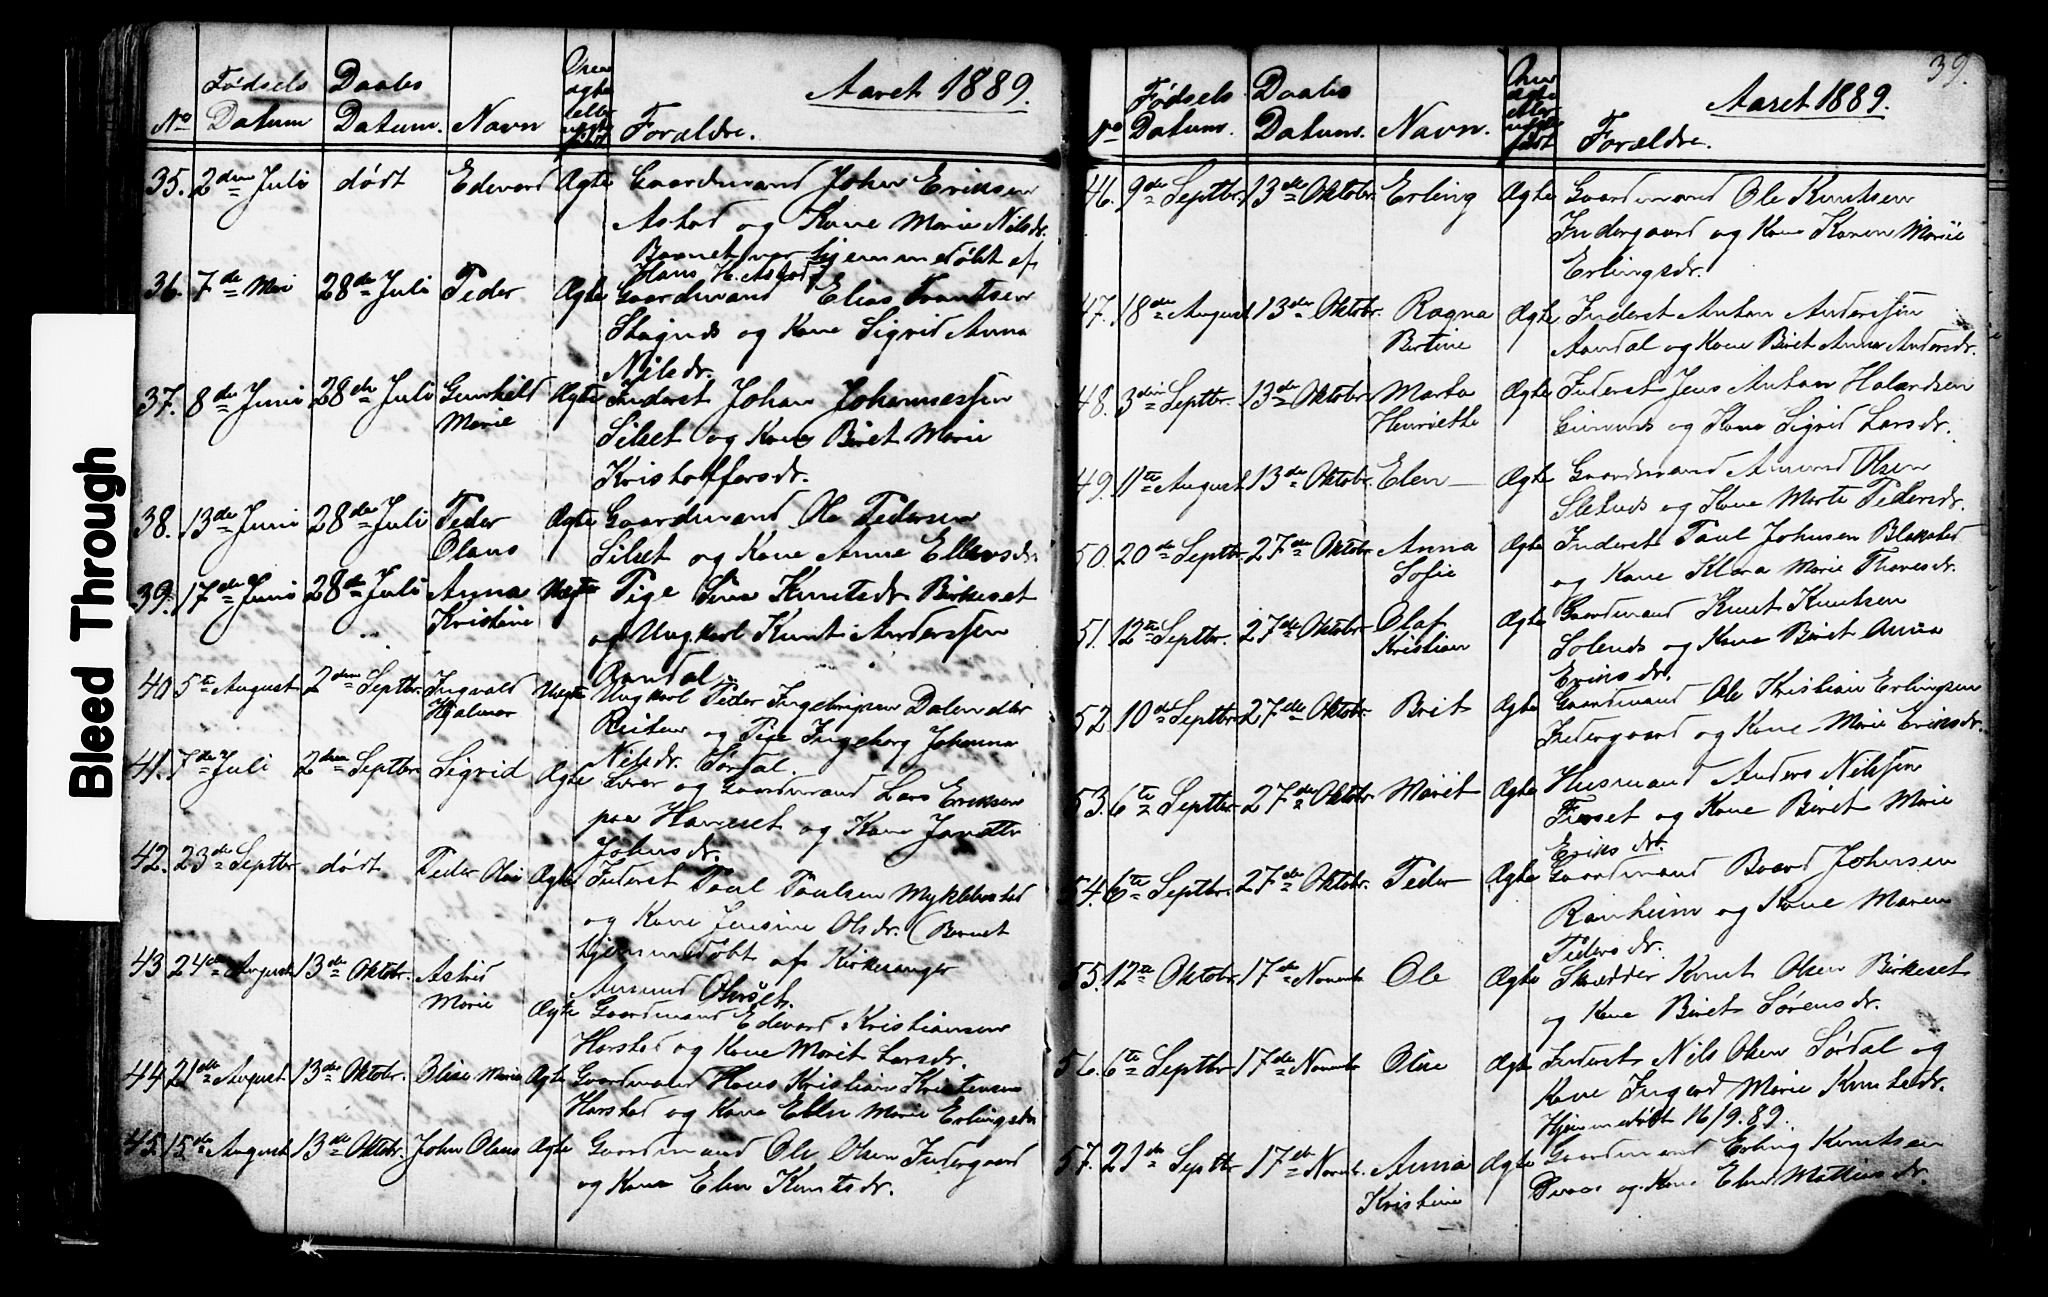 Bleed Through
Aaret 1889.
No Fødsels Datum Daabs Datum. Navn Om ægte eller uægte født Forældre.
35. 2den Juli dødt Edevard Ægte Gaardmand John Eriksen
Astad og Kone Marie Nilsdr.
Barnet var hjemmedøbt af
Hans H. Astad
36. 7de Mai 28de Juli Peder Ægte Gaardmand Elias Frantsen
Stagnes og Kone Sigrid Anna
Nilsdr.
37. 8de Juni 28de Juli Gunhild Ægte Inderst Johan Johannessen
Marie Silset og Kone Beret Marie
Kristoffersdr.
38. 13de Juni 28de Juli Peder Ægte Gaardmand Ole Pedersen
Olaus Silset og Kone Anne Ellevsdr.
39. 17de Juni 28de Juli Anna Uægte Pige Sina Knutsdr. Birkeset
Kristine og Ungkarl Knut Anderssen
Aandal.
40. 5te August 2den Septbr. Ingvald Uægte Ungkarl Peder Ingebrigsen Dalen eller
Hjalmar Reiten og Pige Ingeborg Johanna
Nilsdr. Sørdal.
41. 7de Juli 2den Septbr. Sigrid Ægte Gaardmand Lars Eriksen
paa Haneset og Kone
Johnsdr.
42. 23de Septbr dødt Peder Olai Ægte Inderst Paul Paulsen Myklebostad
og Kone Jensine Olsdr. (Barnet
hjemmedøbt af Kirkesanger
Amund
43 24de August 13de Oktobr. Astrid
Marie Ægte Gaardmand Edevard Kristiansen
Harstad og Kone Marit Larsdr.
44 21de August 13de Oktobr. Oline Marie Ægte Gaardmand Hans Kristian Kristensen
Harstad og Kone Ellen Marie Erlingsdr
45. 15de August 13de Oktobr. John Olaus Ægte Gaardmand Ole Olsen Indergaard
og Kone Elen Knutsdr.
39.
Aaret 1889.
No Fødsels Datum. Daabs Datum. Navn. Om ægte eller uægte født Forældre.
46. 9de Septbr. 13de Oktobr. Erling Ægte Gaardmand Ole Knutsen
Indergaard og Kone Karen Marie
Erlingsdr.
47. 18de August 13de Oktobr. Ragna Ægte Inderst Anton Anderssen
Bertine Aandal og Kone Berit Anna Andersdr.
48. 3die Septbr. 13de Oktobr. Marta Ægte Inderst Jens Anton Halvardsen
Henriette Gimnes og Kone Sigrid Larsdr.
49. 11te August 13de Oktobr. Elen Ægte Gaardmand Amund Olsen
Sletnes og Kone Marte Pedersdr.
50. 20de Septbr. 27de Oktobr. Anna Ægte Inderst Paul Johnsen Blakstad
Sofie og Kone Klara Marie Thoresdr.
51. 12te Septbr. 27de Oktobr. Olaf Ægte Gaardmand Knut Knutsen
Kristian Solenes og Kone Beret Anna
Eriksdr.
52. 10de Septbr. 27de Oktobr. Brit Ægte Gaardmand Ole Kristian Erlingsen
Indergaard og Kone Marie Eriksdr.
53. 6te Septbr. 27de Oktobr. Marit Ægte Husmand Anders Nilssen
Furset og Kone Beret Marie
Eriksdr.
54. 6te Septbr. 27de Oktobr. Peder Ægte Gaardmand Baard Johnsen
Ranheim og Kone Maren
Pedersdr.
55. 12te Oktobr. 17de Novembr Ole Ægte Skrædder Knut Olsen Birkeset
og Kone Beret Sørensdr.
56. 6te Septbr. 17de Novembr Oline Ægte Inderst Nils Olsen Sørdal og
Kone Marie Knutsdr.
Hjemmedøbt 16/9.89.
57. 21de Septbr 17de Novbr. Anna Ægte Gaardmand Erling Knutsen
Kristine og Kone Elen Mathiasdr.